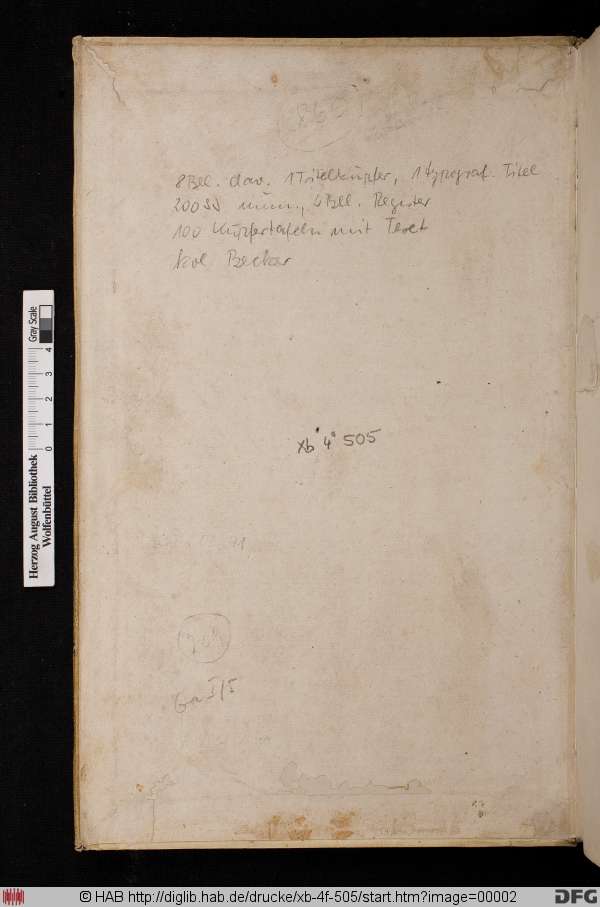 8 Bll. dav. 1 Titelkupfer, 1 typograf. Titel
200 SS num., 4 Bll. Register
100 Kupfertafeln mit Text
kol Becker
Xb 4° 505
Ga I/5
Gray Scale
0 1 2 3 4
Herzog August Bibliothek
Wolfenbüttel
© HAB http://diglib.hab.de/drucke/xb-4f-505/start.htm?image=00002
DFG